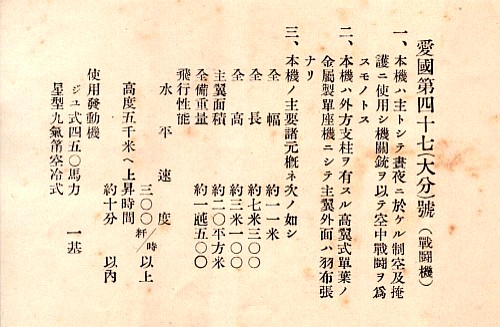 愛國第四十七(大分)號(戰鬪機)
一、本機ハ主トシテ晝夜ニ於ケル制空及掩
護ニ使用シ機關銃ヲ以テ空中戰鬪ヲ爲
スモノトス
二、本機ハ外方支柱ヲ有スル高翼式單葉ノ
金屬製單座機ニシテ主翼外面ハ羽布張
ナリ
三、本機ノ主要諸元槪ネ次ノ如シ
全幅 約一一米
全長 約七米三〇〇
全高 約三米一〇〇
主翼面積 約二〇平方米
全備重量 約一瓲五〇〇
飛行性能
水平速度 三〇〇粁/時以上
高度五千米ヘ上昇時間
約十分以內
使用發動機
ジユ式四五〇馬力 一基
星型九氣筩空冷式